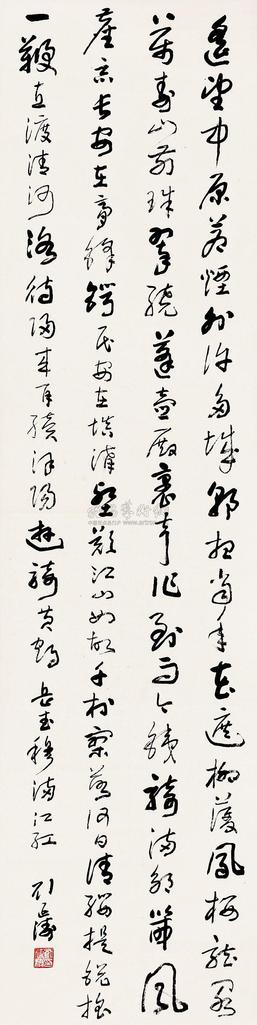 遥望中原荒煙外許多城郭想當年花遮柳護鳳樓龍閣
萬壽山前珠翠繞蓬壺殿裏笙作到而今鐵騎滿郊畿風
塵惡兵安在膏鋒鍔民安在填溝壑歎江山如故千村寥落何日請纓提銳旅
一鞭直渡清河洛待歸來再續漢陽遊騎黃鶴 岳武穆滿江紅